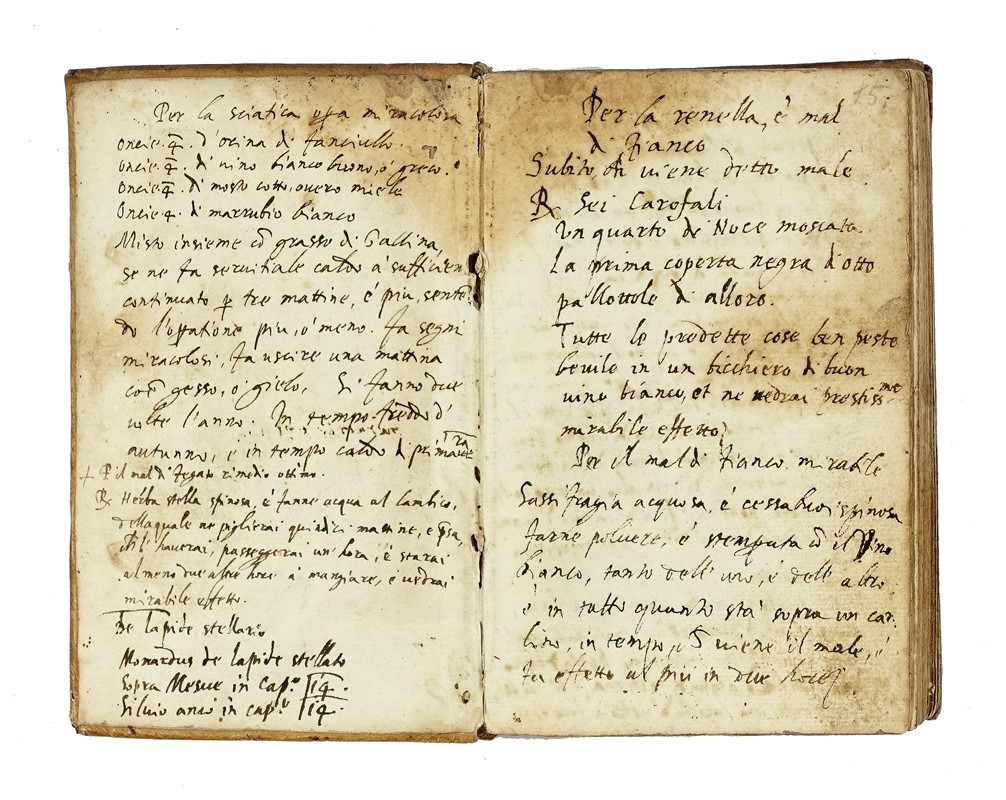 Per la sciatica cosa miracolosa
Oncie 4. d'orina di fanciullo.
Oncie 4. di vino bianco buono, ò greco.
Oncie 4. di mosto cotto, overo miele
Oncie 4. di marrubio bianco
Misto insieme cō grasso di Gallina,
se ne fa servitiale caldo à sufficien
continuato p tre mattine, é piu, sente
do l'opatione piu, ò meno. Fa segni
miracolosi, fa uscire una mattina
come gesso, ò gielo. Si fanno due
volte l'anno. In tempo freddo d'
autunno, e in tempo caldo di primavera
+ P il mal di fegato rimedio ottimo.
℞ Herba stella spinosa, é fanne acqua al lambico,
della quale ne piglierai quindici mattine, e psa
ch l'haverai, passeggerai un'hora, é starai
almeno due altre hore à mangiare, é vedrai
mirabile effetto.
De lapide stellario
Monardus de lapide stellato
sopra Mesue in cap.º 14.
Silvio anco in cap.º 14.
15.
Per la renella, è mal
di fianco
Subito, ch viene detto male
℞ Sei Garofali
Un quarto di Noce moscata
La prima coperta negra d'otto
pallottole di alloro.
Tutte le predette cose ben peste
bevile in un bicchiero di buon
vino bianco, et ne vedrai prestissme
mirabile effetto.
Per il mal di fianco mirabile
Sassifragia acquosa, é spinosa
farne polvere, é stemprata cō il Vino
bianco, tanto dell' uno, é dell' altro
é in tutto quanto stà sopra un car
lino, in tempo, ch viene il male, é
fa effetto al piu in due hore